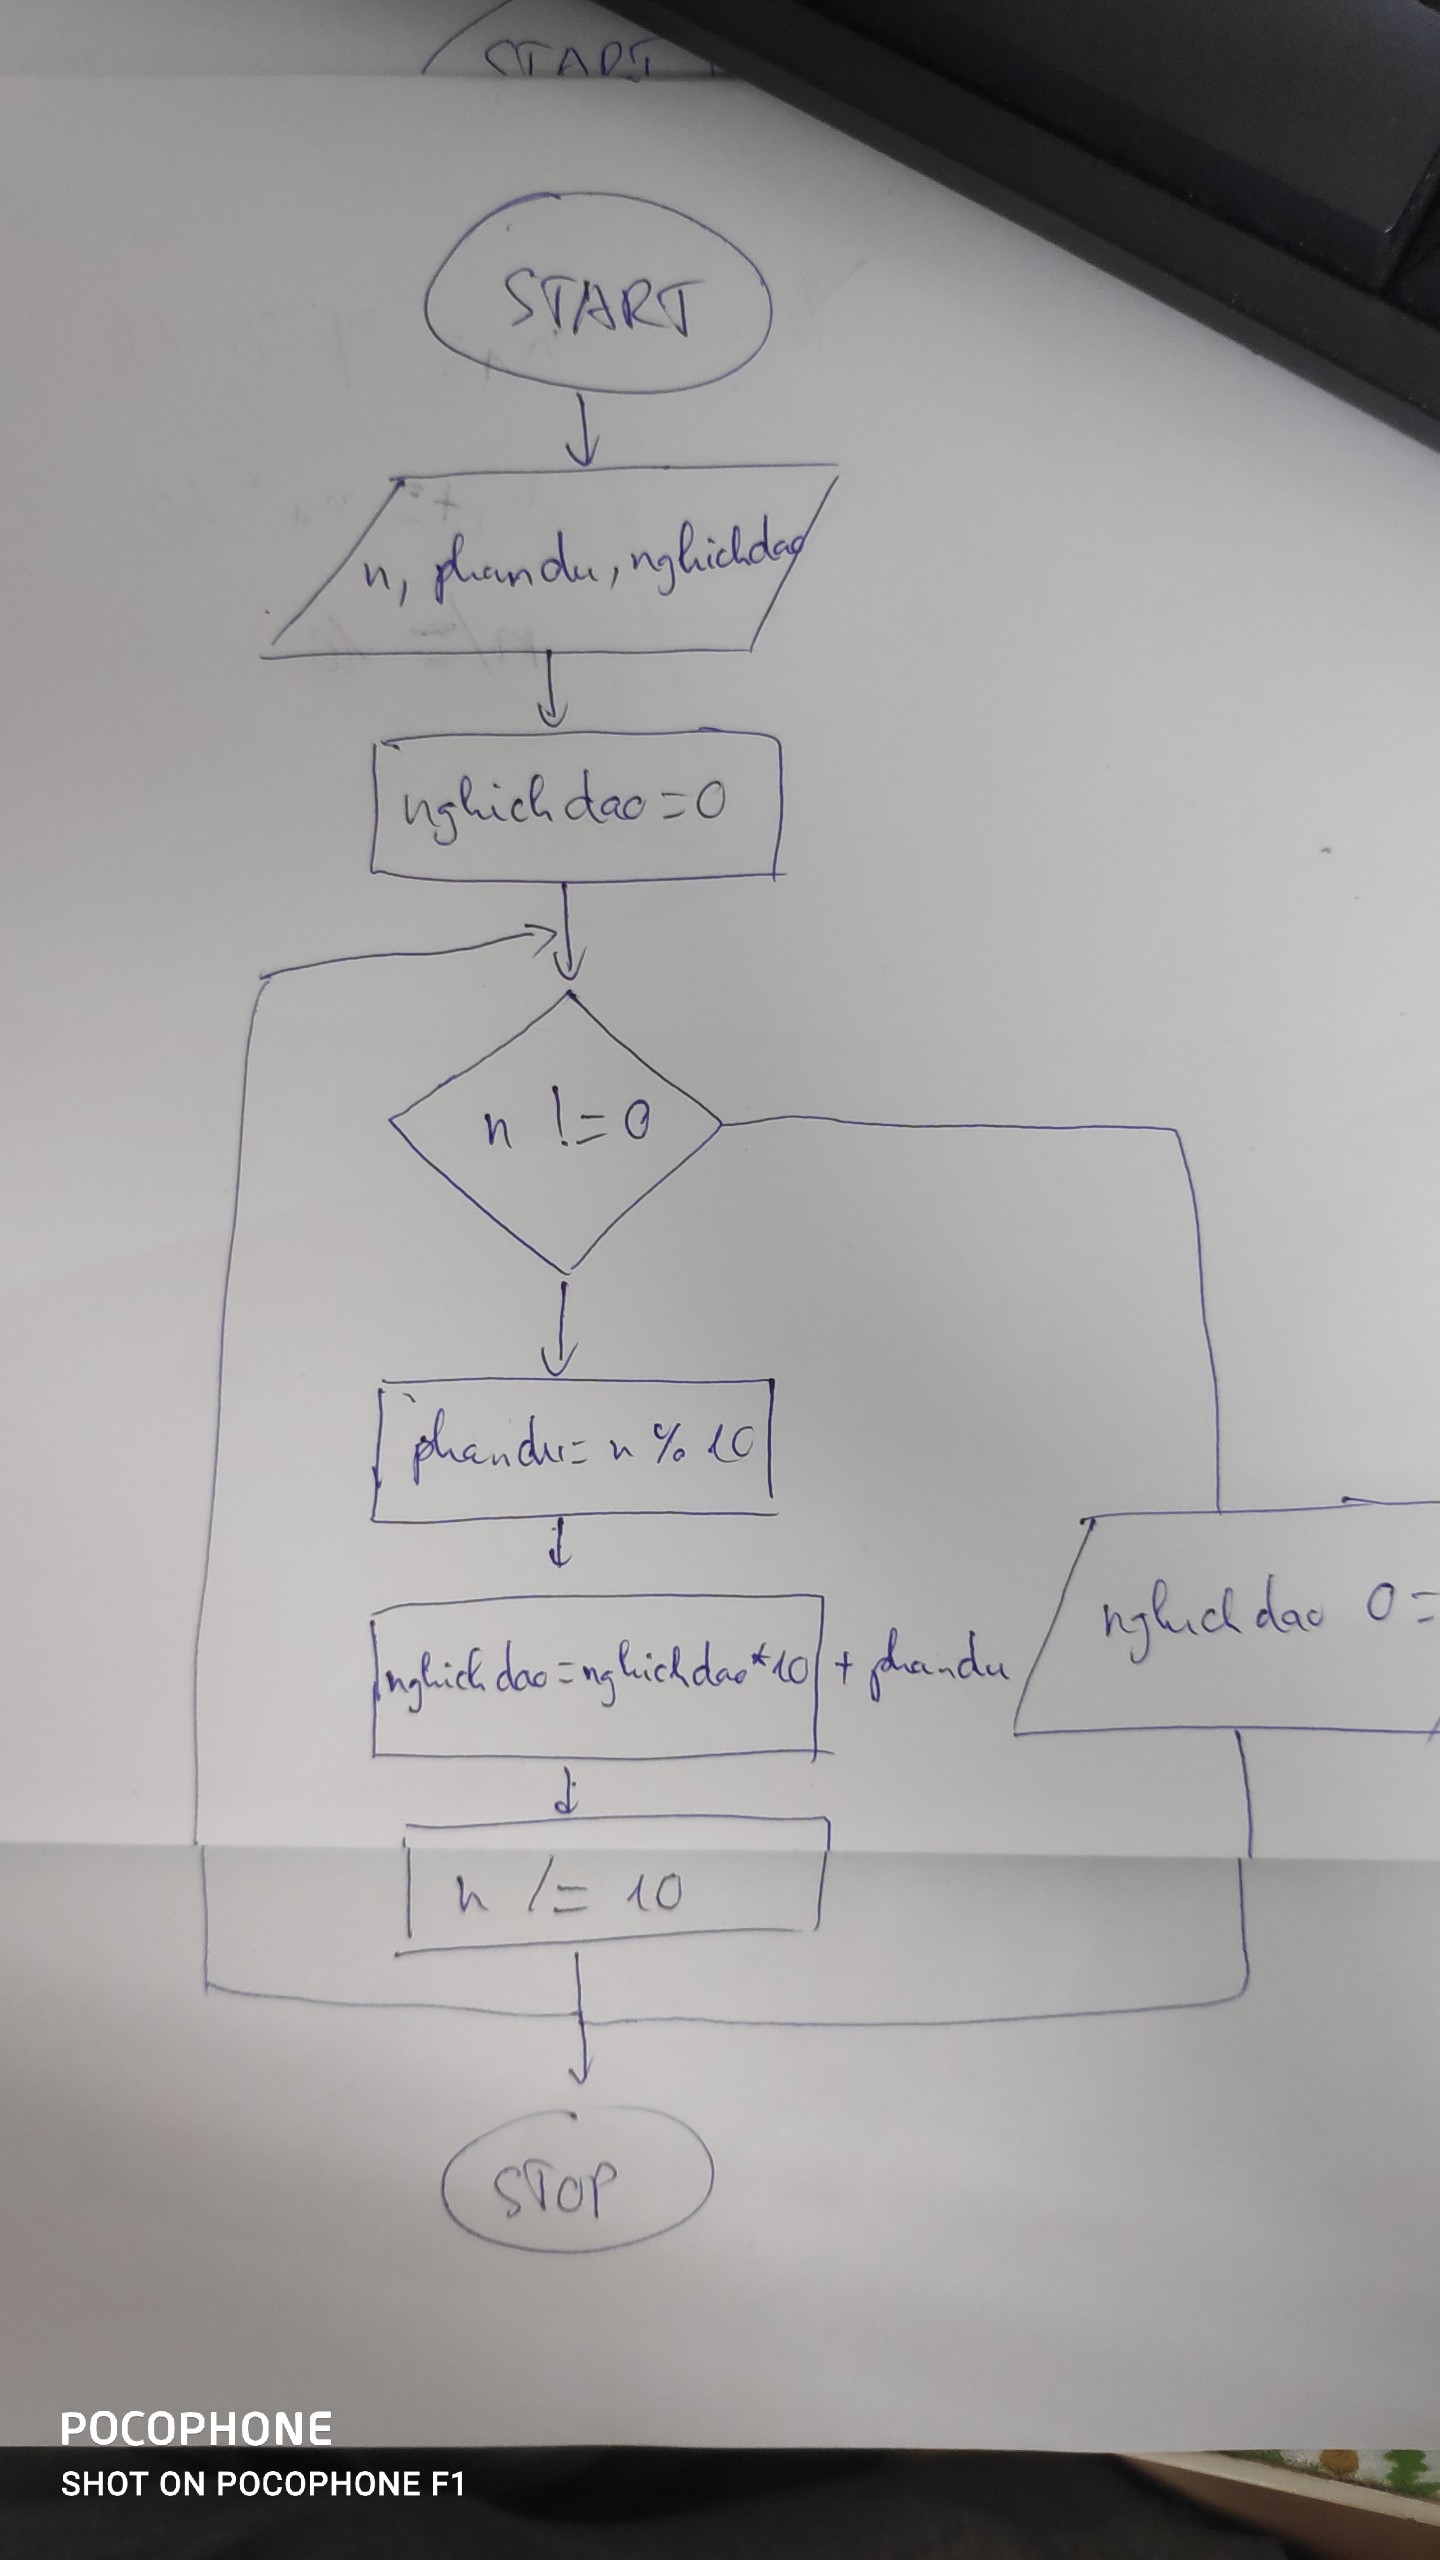 START
START
n, phandu, nghichdao
nghichdao = 0
n != 0
phandu = n % 10
nghichdao = nghichdao * 10 + phandu
nghichdao 0 =
n /= 10
STOP
POCOPHONE
SHOT ON POCOPHONE F1